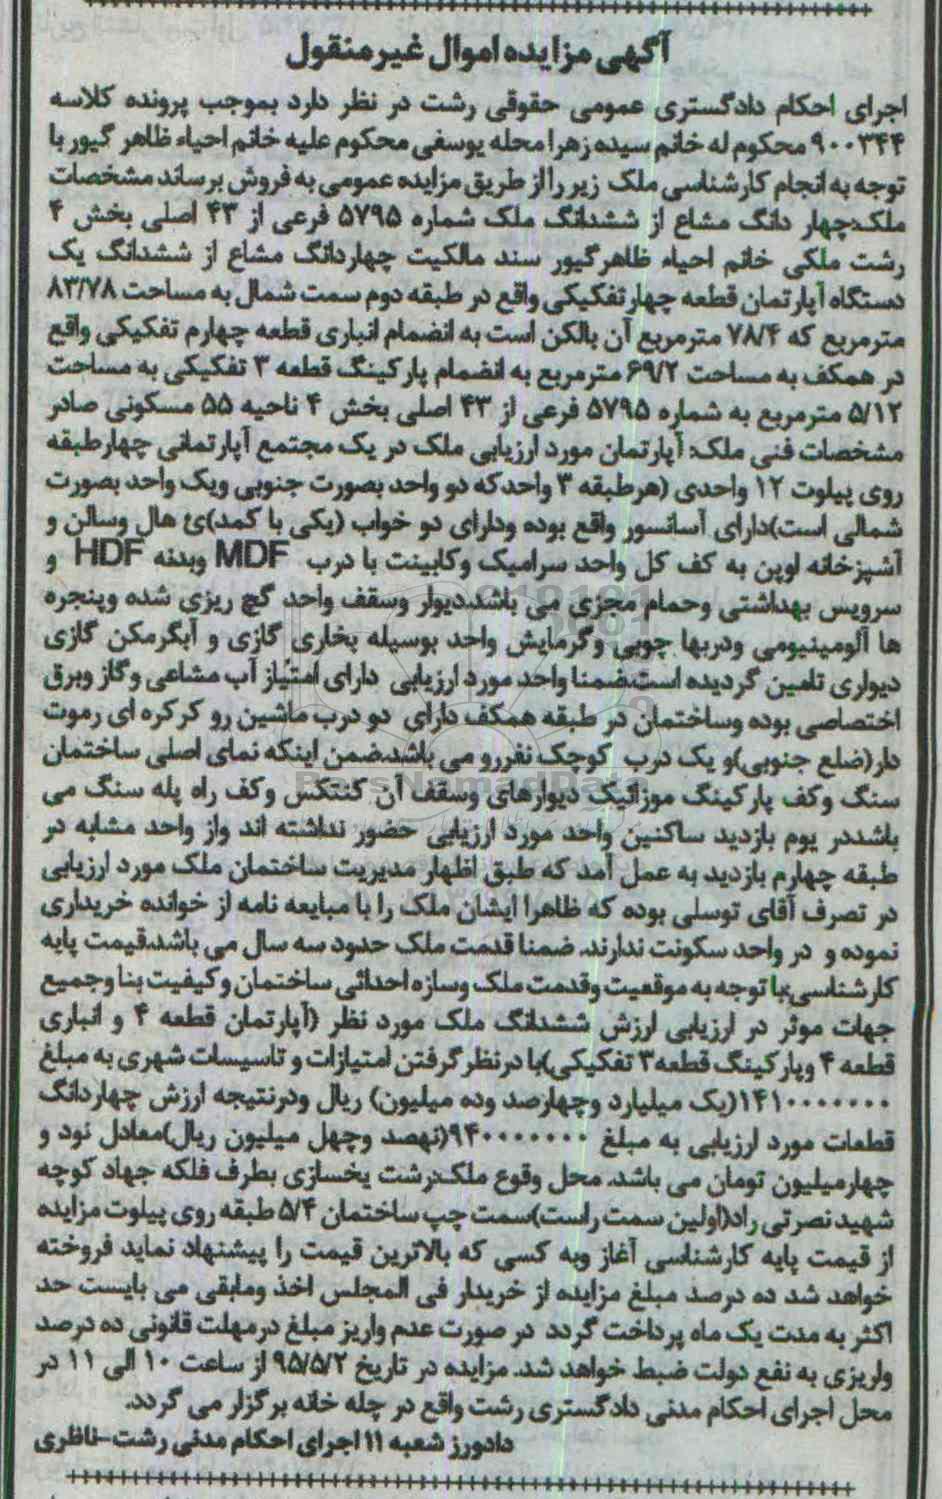 آگهی مزایده اموال غیرمنقول
اجرای احکام دادگستری عمومی حقوقی رشت در نظر دارد بموجب پرونده کلاسه
۹۰۰۳۴۴ محکوم له خانم سیده زهرا محله یوسفی محکوم علیه خانم احیاء ظاهر گیور با
توجه به انجام کارشناسی ملک زیر را از طریق مزایده عمومی به فروش برساند مشخصات
ملک:چهار دانگ مشاع از ششدانگ ملک شماره ۵۷۹۵ فرعی از ۴۳ اصلی بخش ۴
رشت ملکی خانم احیاء ظاهرگیور سند مالکیت چهاردانگ مشاع از ششدانگ یک
دستگاه آپارتمان قطعه چهارتفکیکی واقع در طبقه دوم سمت شمال به مساحت ۸۳/۷۸
مترمربع که ۷۸/۴ مترمربع آن بالکن است به انضمام انباری قطعه چهارم تفکیکی واقع
در همکف به مساحت ۶۹/۲ مترمربع به انضمام پارکینگ قطعه ۳ تفکیکی به مساحت
۵/۱۲ مترمربع به شماره ۵۷۹۵ فرعی از ۴۳ اصلی بخش ۴ ناحیه ۵۵ مسکونی صادر
مشخصات فنی ملک: آپارتمان مورد ارزیابی ملک در یک مجتمع آپارتمانی چهارطبقه
روی پیلوت ۱۲ واحدی (هرطبقه ۳ واحدکه دو واحد بصورت جنوبی ویک واحد بصورت
شمالی است)دارای آسانسور واقع بوده ودارای دو خواب (یکی با کمد)ئ هال وسالن و
آشپزخانه اوپن به کف کل واحد سرامیک وکابینت با درب MDF وبدنه HDF و
سرویس بهداشتی وحمام مجزی می باشد.دیوار وسقف واحد گچ ریزی شده وپنجره
ها آلومینیومی ودربها چوبی وگرمایش واحد بوسیله بخاری گازی و آبگرمکن گازی
دیواری تامین گردیده است.ضمنا واحد مورد ارزیابی دارای امتیاز آب مشاعی وگاز وبرق
اختصاصی بوده وساختمان در طبقه همکف دارای دو درب ماشین رو کرکره ای رموت
دار(ضلع جنوبی)و یک درب کوچک نفررو می باشد.ضمن اینکه نمای اصلی ساختمان
سنگ وکف پارکینگ موزائیک دیوارهای وسقف آن کنتکس وکف راه پله سنگ می
باشددر یوم بازدید ساکنین واحد مورد ارزیابی حضور نداشته اند واز واحد مشابه در
طبقه چهارم بازدید به عمل آمد که طبق اظهار مدیریت ساختمان ملک مورد ارزیابی
در تصرف آقای توسلی بوده که ظاهرا ایشان ملک را با مبایعه نامه از خوانده خریداری
نموده و در واحد سکونت ندارند. ضمنا قدمت ملک حدود سه سال می باشد.قیمت پایه
کارشناسی:با توجه به موقعیت وقدمت ملک وسازه احداثی ساختمان و کیفیت بنا وجمیع
جهات موثر در ارزیابی ارزش ششدانگ ملک مورد نظر (آپارتمان قطعه ۴ و انباری
قطعه ۴ وپارکینگ قطعه۳ تفکیکی)با درنظر گرفتن امتیازات و تاسیسات شهری به مبلغ
۱۴۱۰۰۰۰۰۰۰(یک میلیارد وچهارصد وده میلیون) ریال ودرنتیجه ارزش چهاردانگ
قطعات مورد ارزیابی به مبلغ ۹۴۰۰۰۰۰۰۰(نهصد وچهل میلیون ریال)معادل نود و
چهارمیلیون تومان می باشد. محل وقوع ملک:رشت یخسازی بطرف فلکه جهاد کوچه
شهید نصرتی راد(اولین سمت راست)سمت چپ ساختمان ۵/۴ طبقه روی پیلوت مزایده
از قیمت پایه کارشناسی آغاز وبه کسی که بالاترین قیمت را پیشنهاد نماید فروخته
خواهد شد ده درصد مبلغ مزایده از خریدار فی المجلس اخذ ومابقی می بایست حد
اکثر به مدت یک ماه پرداخت گردد در صورت عدم واریز مبلغ درمهلت قانونی ده درصد
واریزی به نفع دولت ضبط خواهد شد. مزایده در تاریخ ۹۵/۵/۲ از ساعت ۱۰ الی ۱۱ در
محل اجرای احکام مدنی دادگستری رشت واقع در چله خانه برگزار می گردد.
دادورز شعبه ۱۱ اجرای احکام مدنی رشت-ناظری
Pars Namad Data